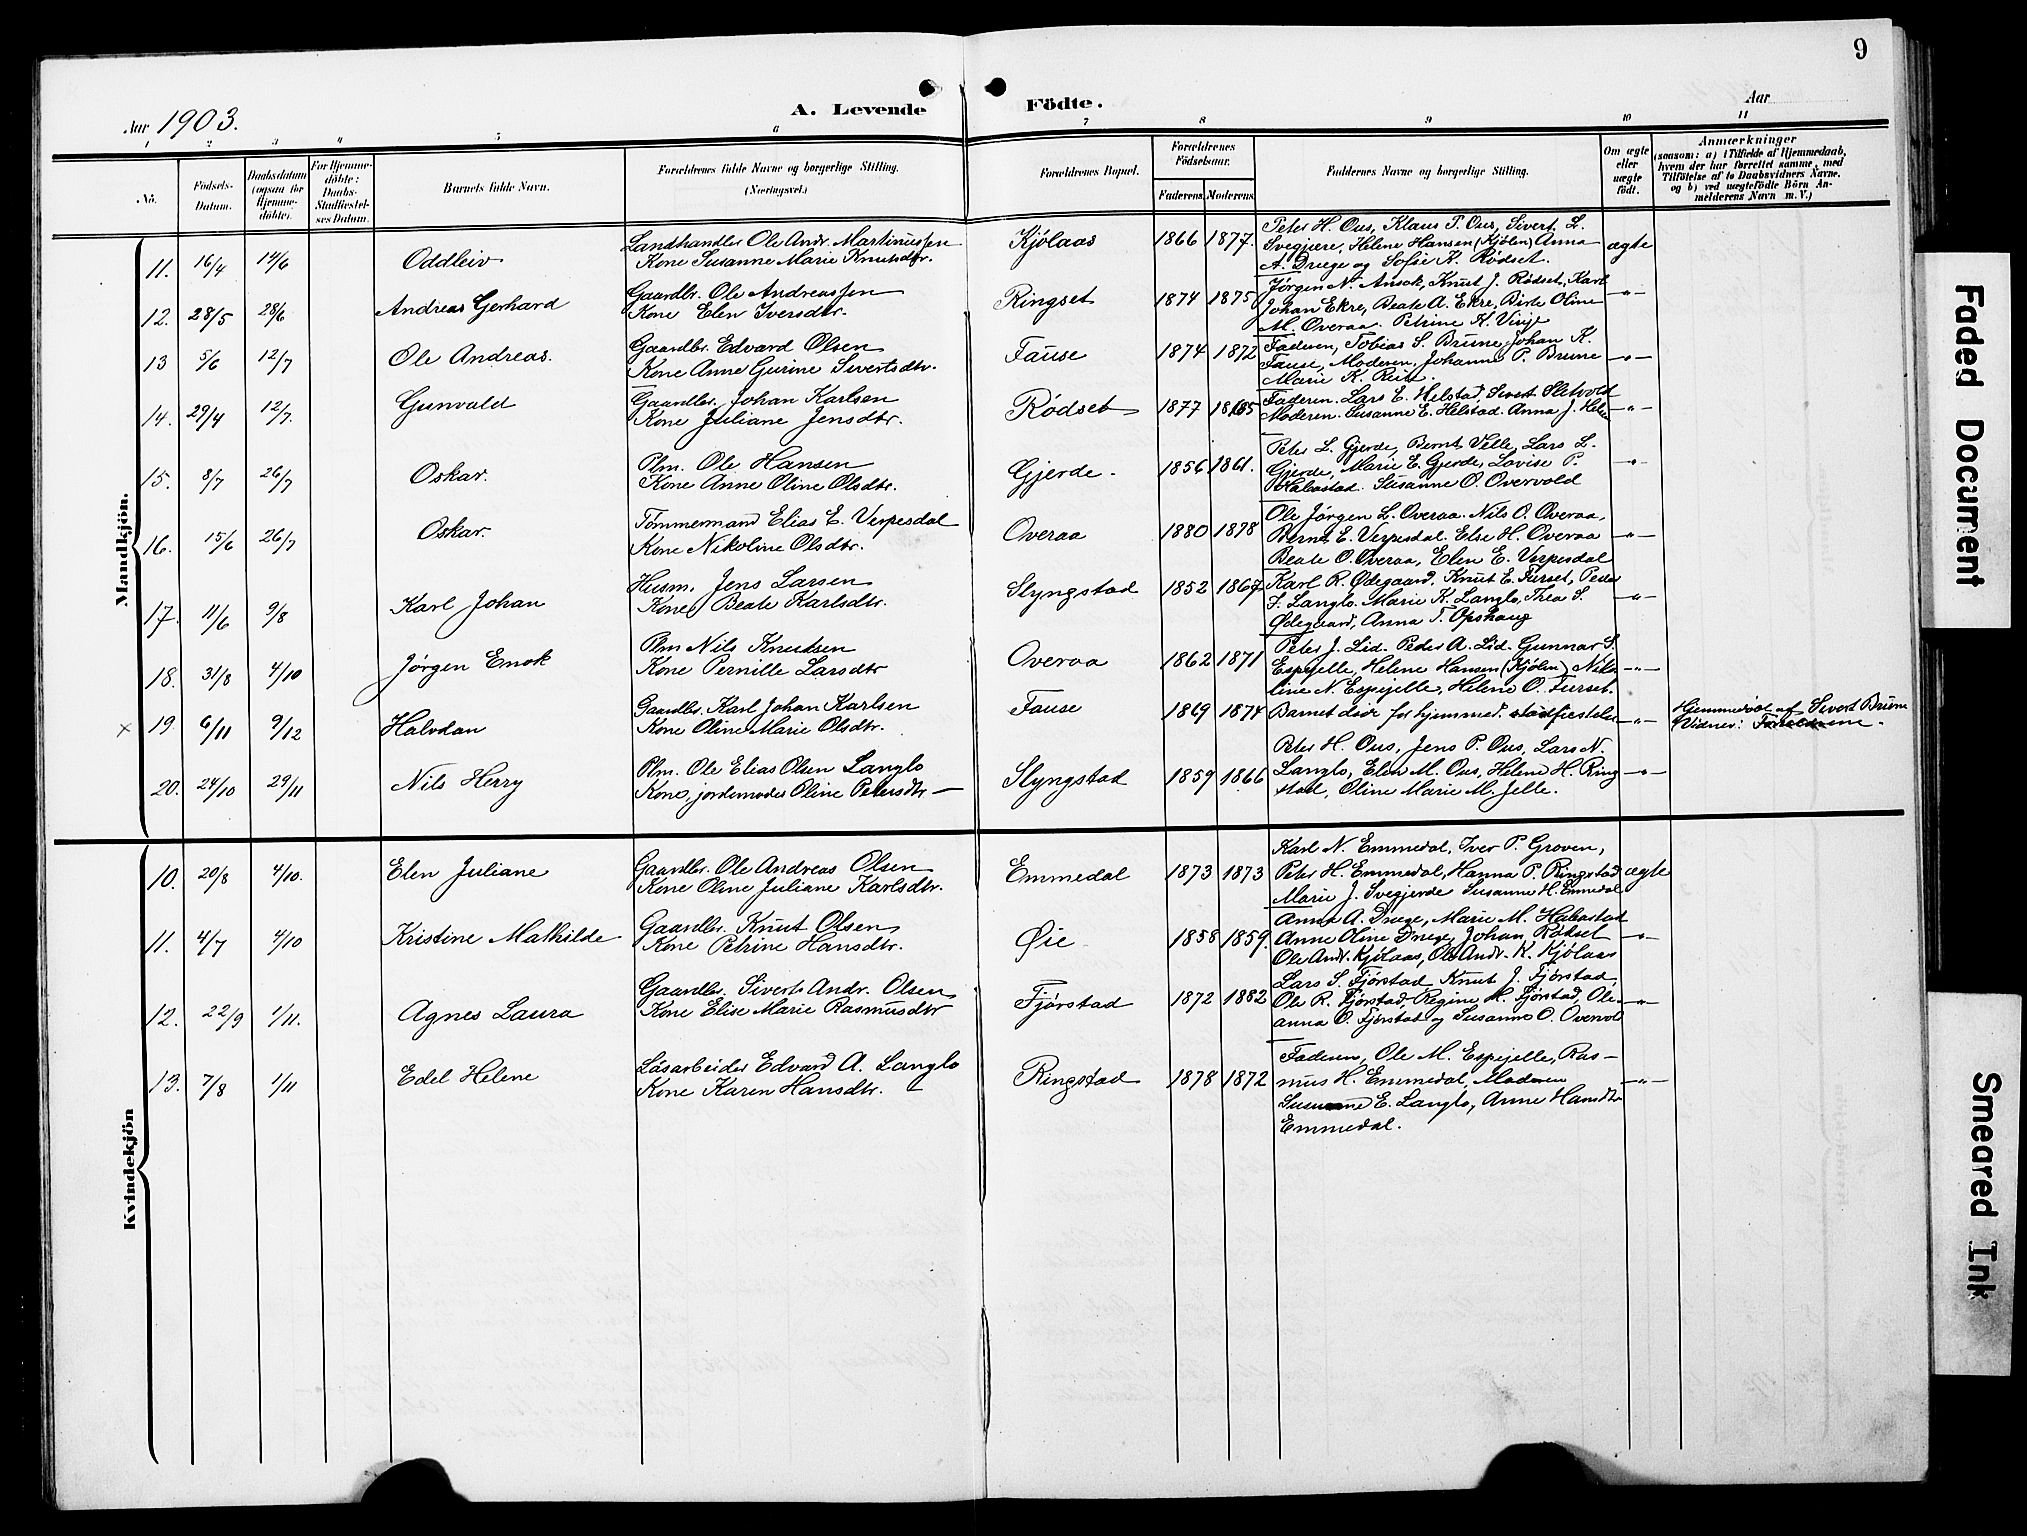 9
Aar 1903.
A. Levende Födte.
Aar
1 2 3 4 5 6 7 8 9 10 11
No.
Födsels-Datum.
Daabsdatum (ogsaa for Hjemme-döbte).
For Hjemme-döbte: Daabs-Stadfæstel-ses Datum.
Barnets fulde Navn.
Forældrenes fulde Navne og borgerlige Stilling. (Næringsvei.)
Forældrenes Bopæl.
Forældrenes Födselsaar.
Faderens Moderens
Faddernes Navne og borgerlige Stilling.
Om ægte eller uægte födt.
Anmærkninger
(saasom: a) i Tilfælde af Hjemmedaab, hvem der har forrettet samme, med Tilföielse af to Daabsvidners Navne, og b) ved uægtefödte Börn An-melderens Navn m. V.)
Mandkjön.
11. 16/4 14/6 Oddleiv Landhandler Ole Andr. Martinussen Kone Susanne Marie Knutsdtr. Kjölaas 1866 1877. Peter H. Ous, Klaus P. Ous, Sivert L.
Svegjære, Helene Hansen (Kjölen) Anna ægte
A. Drege og Sofie K. Rødset.
12. 28/5 28/6 Andreas Gerhard Gaardbr. Ole Andreassen Kone Elen Iversdtr. Ringset 1874 1875 Jørgen N. Ansok, Knut J. Rødset, Karl
Johan Ekre, Beate A. Ekre, Birte Oline -"-
M. Overaa. Petrine K. Vinje
13 5/6 12/7 Ole Andreas. Gaardbr. Edvard Olsen Kone Anne Gurine Sivertsdtr. Fause 1874 1872 Faderen, Tobias S. Brune, Johan K.
Fause, Moderen, Johanne P. Brune -"-
Marie K. Reite.
14. 29/4 12/7. Gunvald Gaardbr. Johan Karlsen Kone Juliane Jensdtr. Rödset 1877 1865 Faderen. Lars E. Helstad, Sivert Sletvold
Moderen. Susanne E. Helstad. Anna J. Hele -"-
15. 8/7 26/7 Oskar. Plm. Ole Hansen Kone Anne Oline Olsdtr. Gjerde. 1856 1861. Peter L. Gjerde, Bernt Velle, Lars L.
Gjerde, Marie E. Gjerde, Lovise P. -"-
Habostad. Susanne O. Overvold
16. 15/6 26/7 Oskar. Tömmermand Elias E. Verpesdal Kone Nikoline Olsdtr. Overaa 1880 1878 Ole Jørgen L. Overaa. Nils O. Overaa,
Bernt E. Verpesdal. Else H. Overaa -"-
Beate O. Overaa, Elen E. Verpesdal
17. 11/6 9/8 Karl Johan Husm. Jens Larsen Kone Beate Karlsdtr. Slyngstad 1852 1867 Karl R. Ødegaard. Knut E. Furset, Peder
J. Langlo. Marie K. Langlo, Thea S. -"-
Ødegaard, Anna T. Opshaug
18. 31/8 4/10 Jørgen Enok Plm Nils Knudsen Kone Pernille Larsdtr Overaa 1862 1871 Peter J. Lid. Peder A. Lid. Gunnar S.
Espejelle, Helene Hansen (Kjölen) Niko -"-
line N. Espejelle, Helene O. Furset.
× 19. 6/11 9/12 Halvdan Gaardbr. Karl Johan Karlsen Kone Oline Marie Olsdtr. Fause 1869 1874 Barnet døde for hjemmed. stadfæstelse -"- Hjemmedöbt af Sivert Brune
Vidner: Forældrene.
20. 24/10 29/11 Nils Herry Plm. Ole Elias Olsen Langlo Kone, jordemoder Oline Petersdtr — Slyngstad 1859 1866 Peter H. Ous, Jens P. Ous, Lars N.
Langlo, Elen M. Ous, Helene H. Ring -"-
stad, Oline Marie M. Jelle.
Kvindekjön
10. 20/8 4/10. Elen Juliane Gaardbr. Ole Andreas Olsen Kone Oline Juliane Karlsdtr. Emmedal 1873 1873 Karl N. Emmedal, Iver P. Groven,
Peter H. Emmedal, Hanna P. Ringstad ægte
Marie J. Svegjerde Susanne H. Emmedal
11. 4/7 4/10 Kristine Mathilde Gaardbr. Knut Olsen Kone Petrine Hansdtr. Øie 1858 1859. Anna A. Drege, Marie M. Habostad
Anne Oline Drege, Johan Rødset -"-
Ole Andr. Kjölaas, Ole Andr. K. Kjölaas
12. 22/9 1/11. Agnes Laura Gaardbr. Sivert Andr. Olsen Kone Elise Marie Rasmusdtr Fjörstad 1872 1882 Lars S. Fjörstad, Knut J. Fjörstad,
Ole R. Fjörstad, Regine M. Fjörstad, Ole- -"-
anna O. Fjörstad og Susanne O. Overvol
13. 7/8 1/11 Edel Helene Lösarbeider Edvard A. Langlo Kone Karen Hansdtr. Ringstad 1878 1872 Faderen, Ole M. Espejelle, Ras-
mus H. Emmedal, Moderen -"-
Susanne E. Langlo, Anne Hansdtr
Emmedal.
Faded Document
Smeared Ink